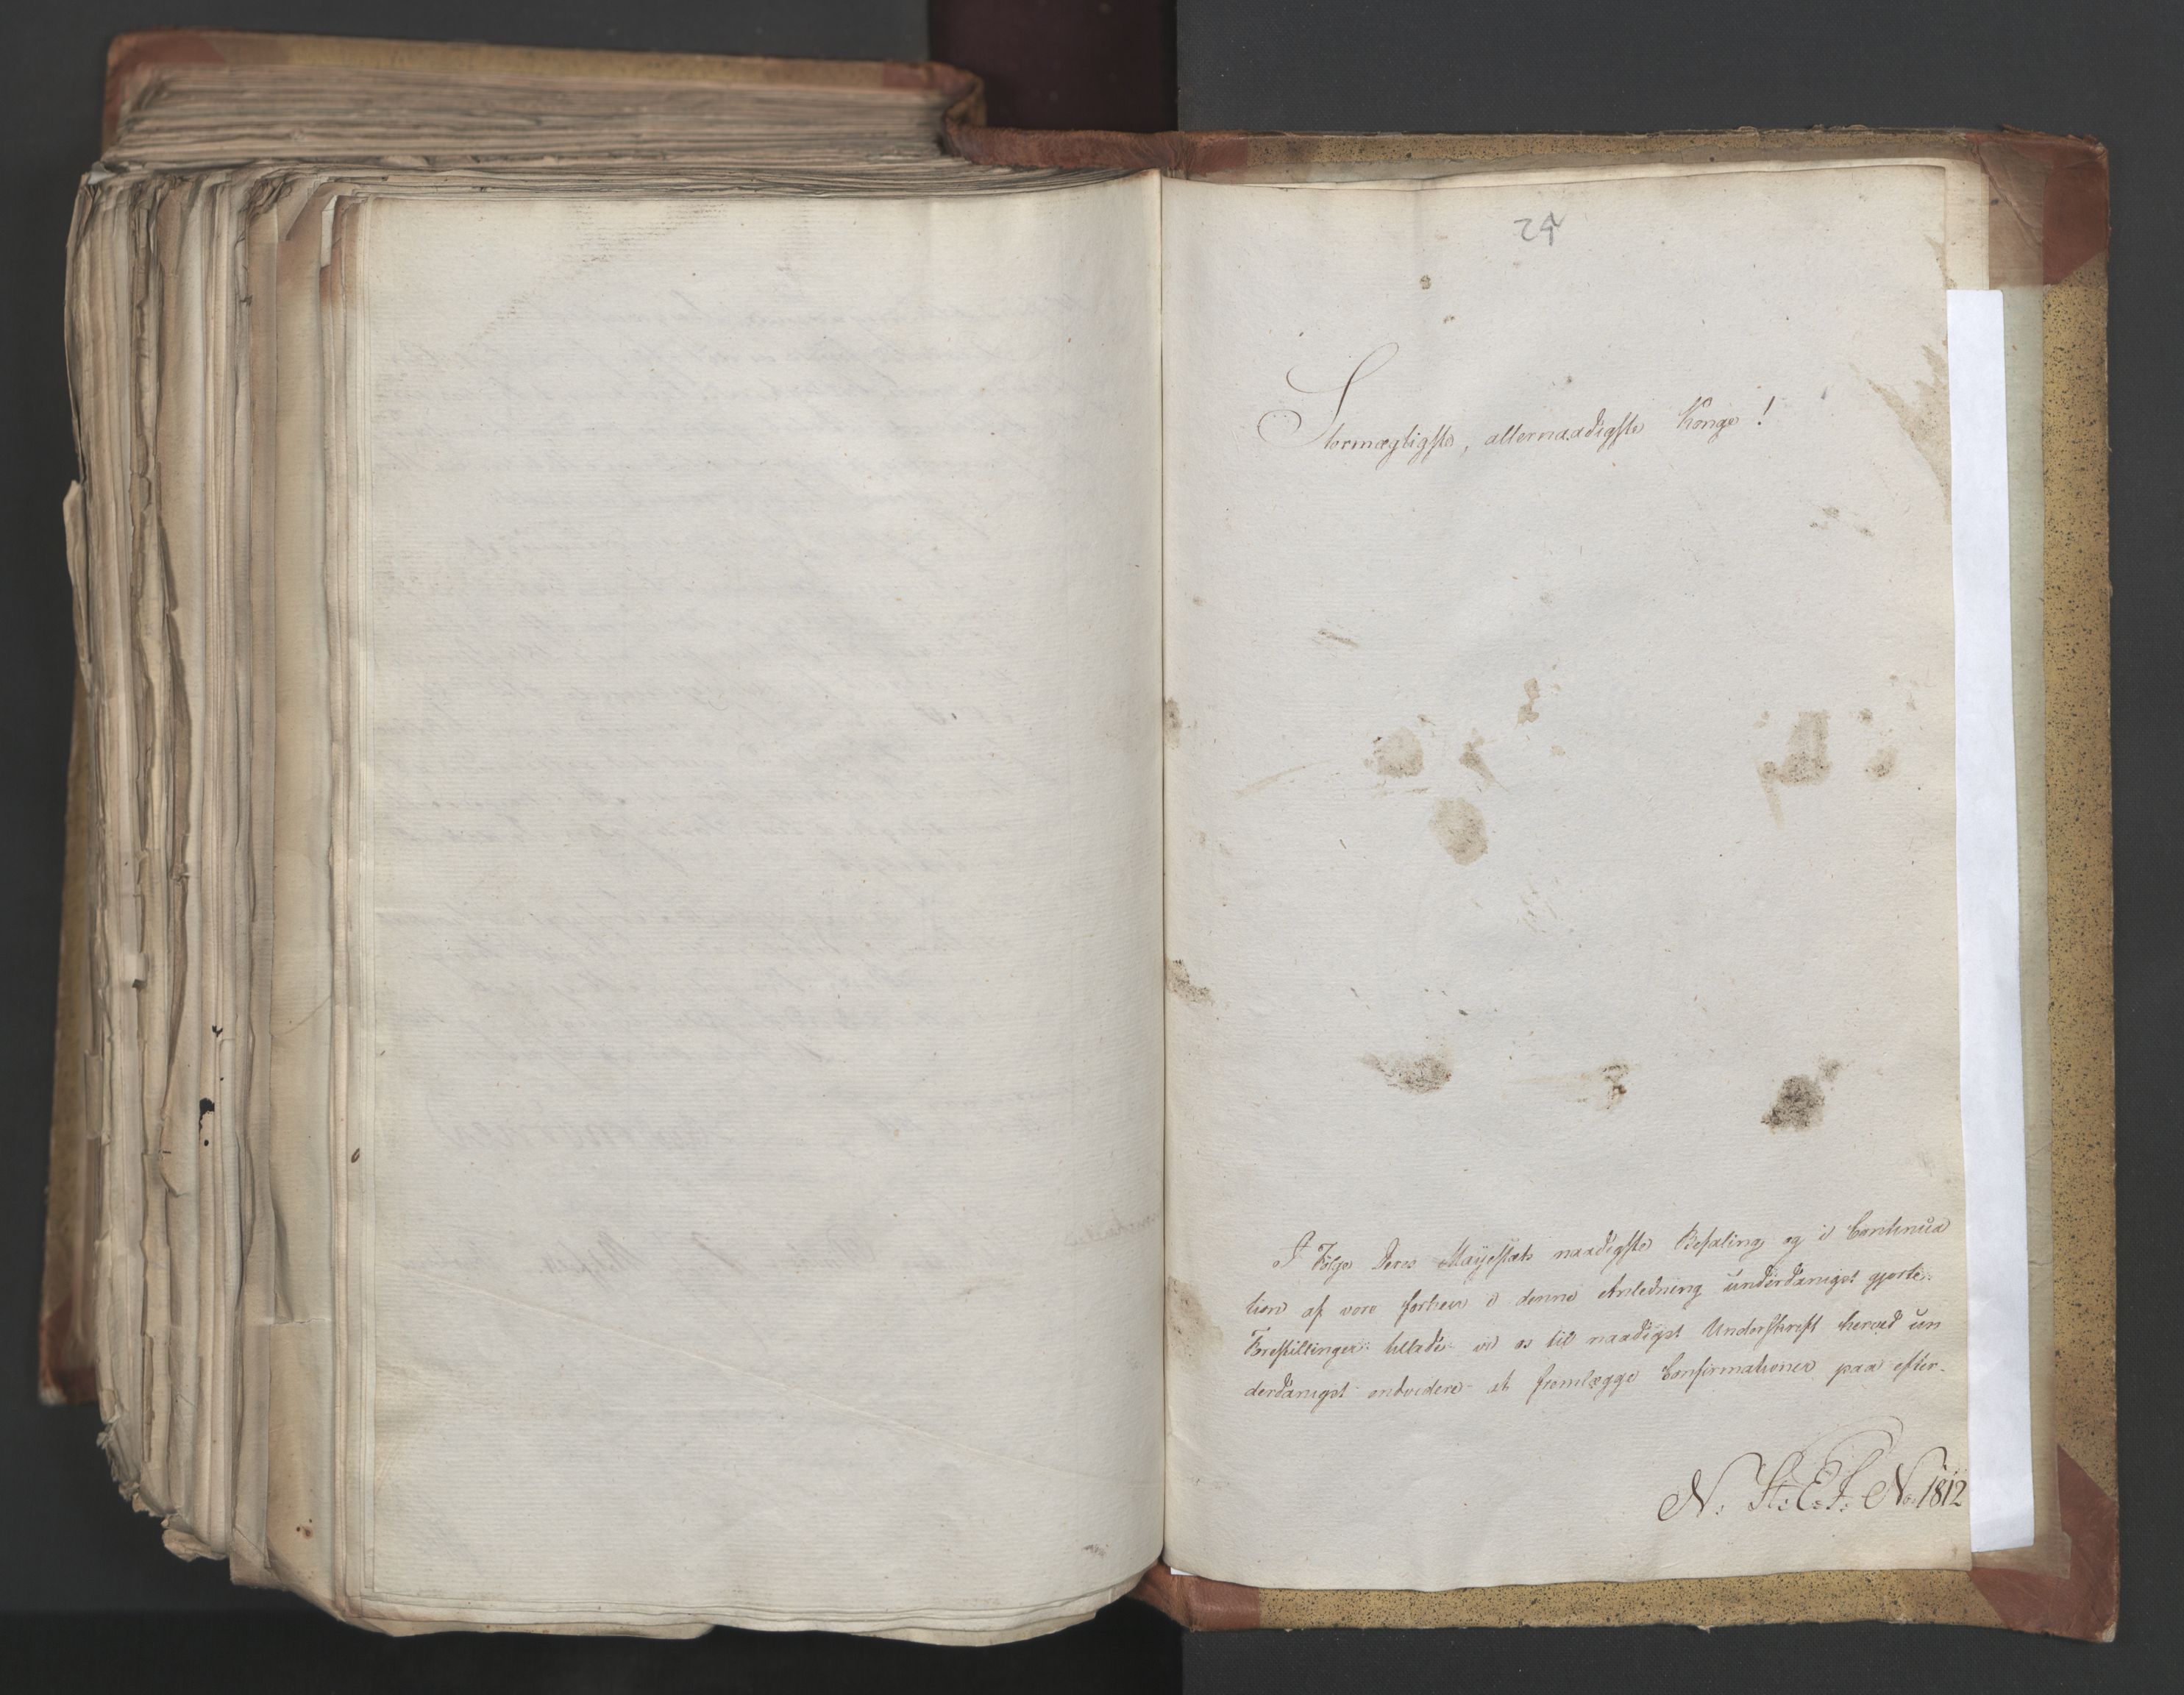 24
Stormægtigste, allernaadigste Konge!
I Følge Deres Mayestæts naadigste Befaling og i Continua
tion af vore forhen i denne Anledning underdanigst gjorte
Forestillinger tillade vi os til naadigst Underskrift herved un
derdanigst ombedere at fremlægge Confirmationer paa efter-
N: St: E: F: No 1812